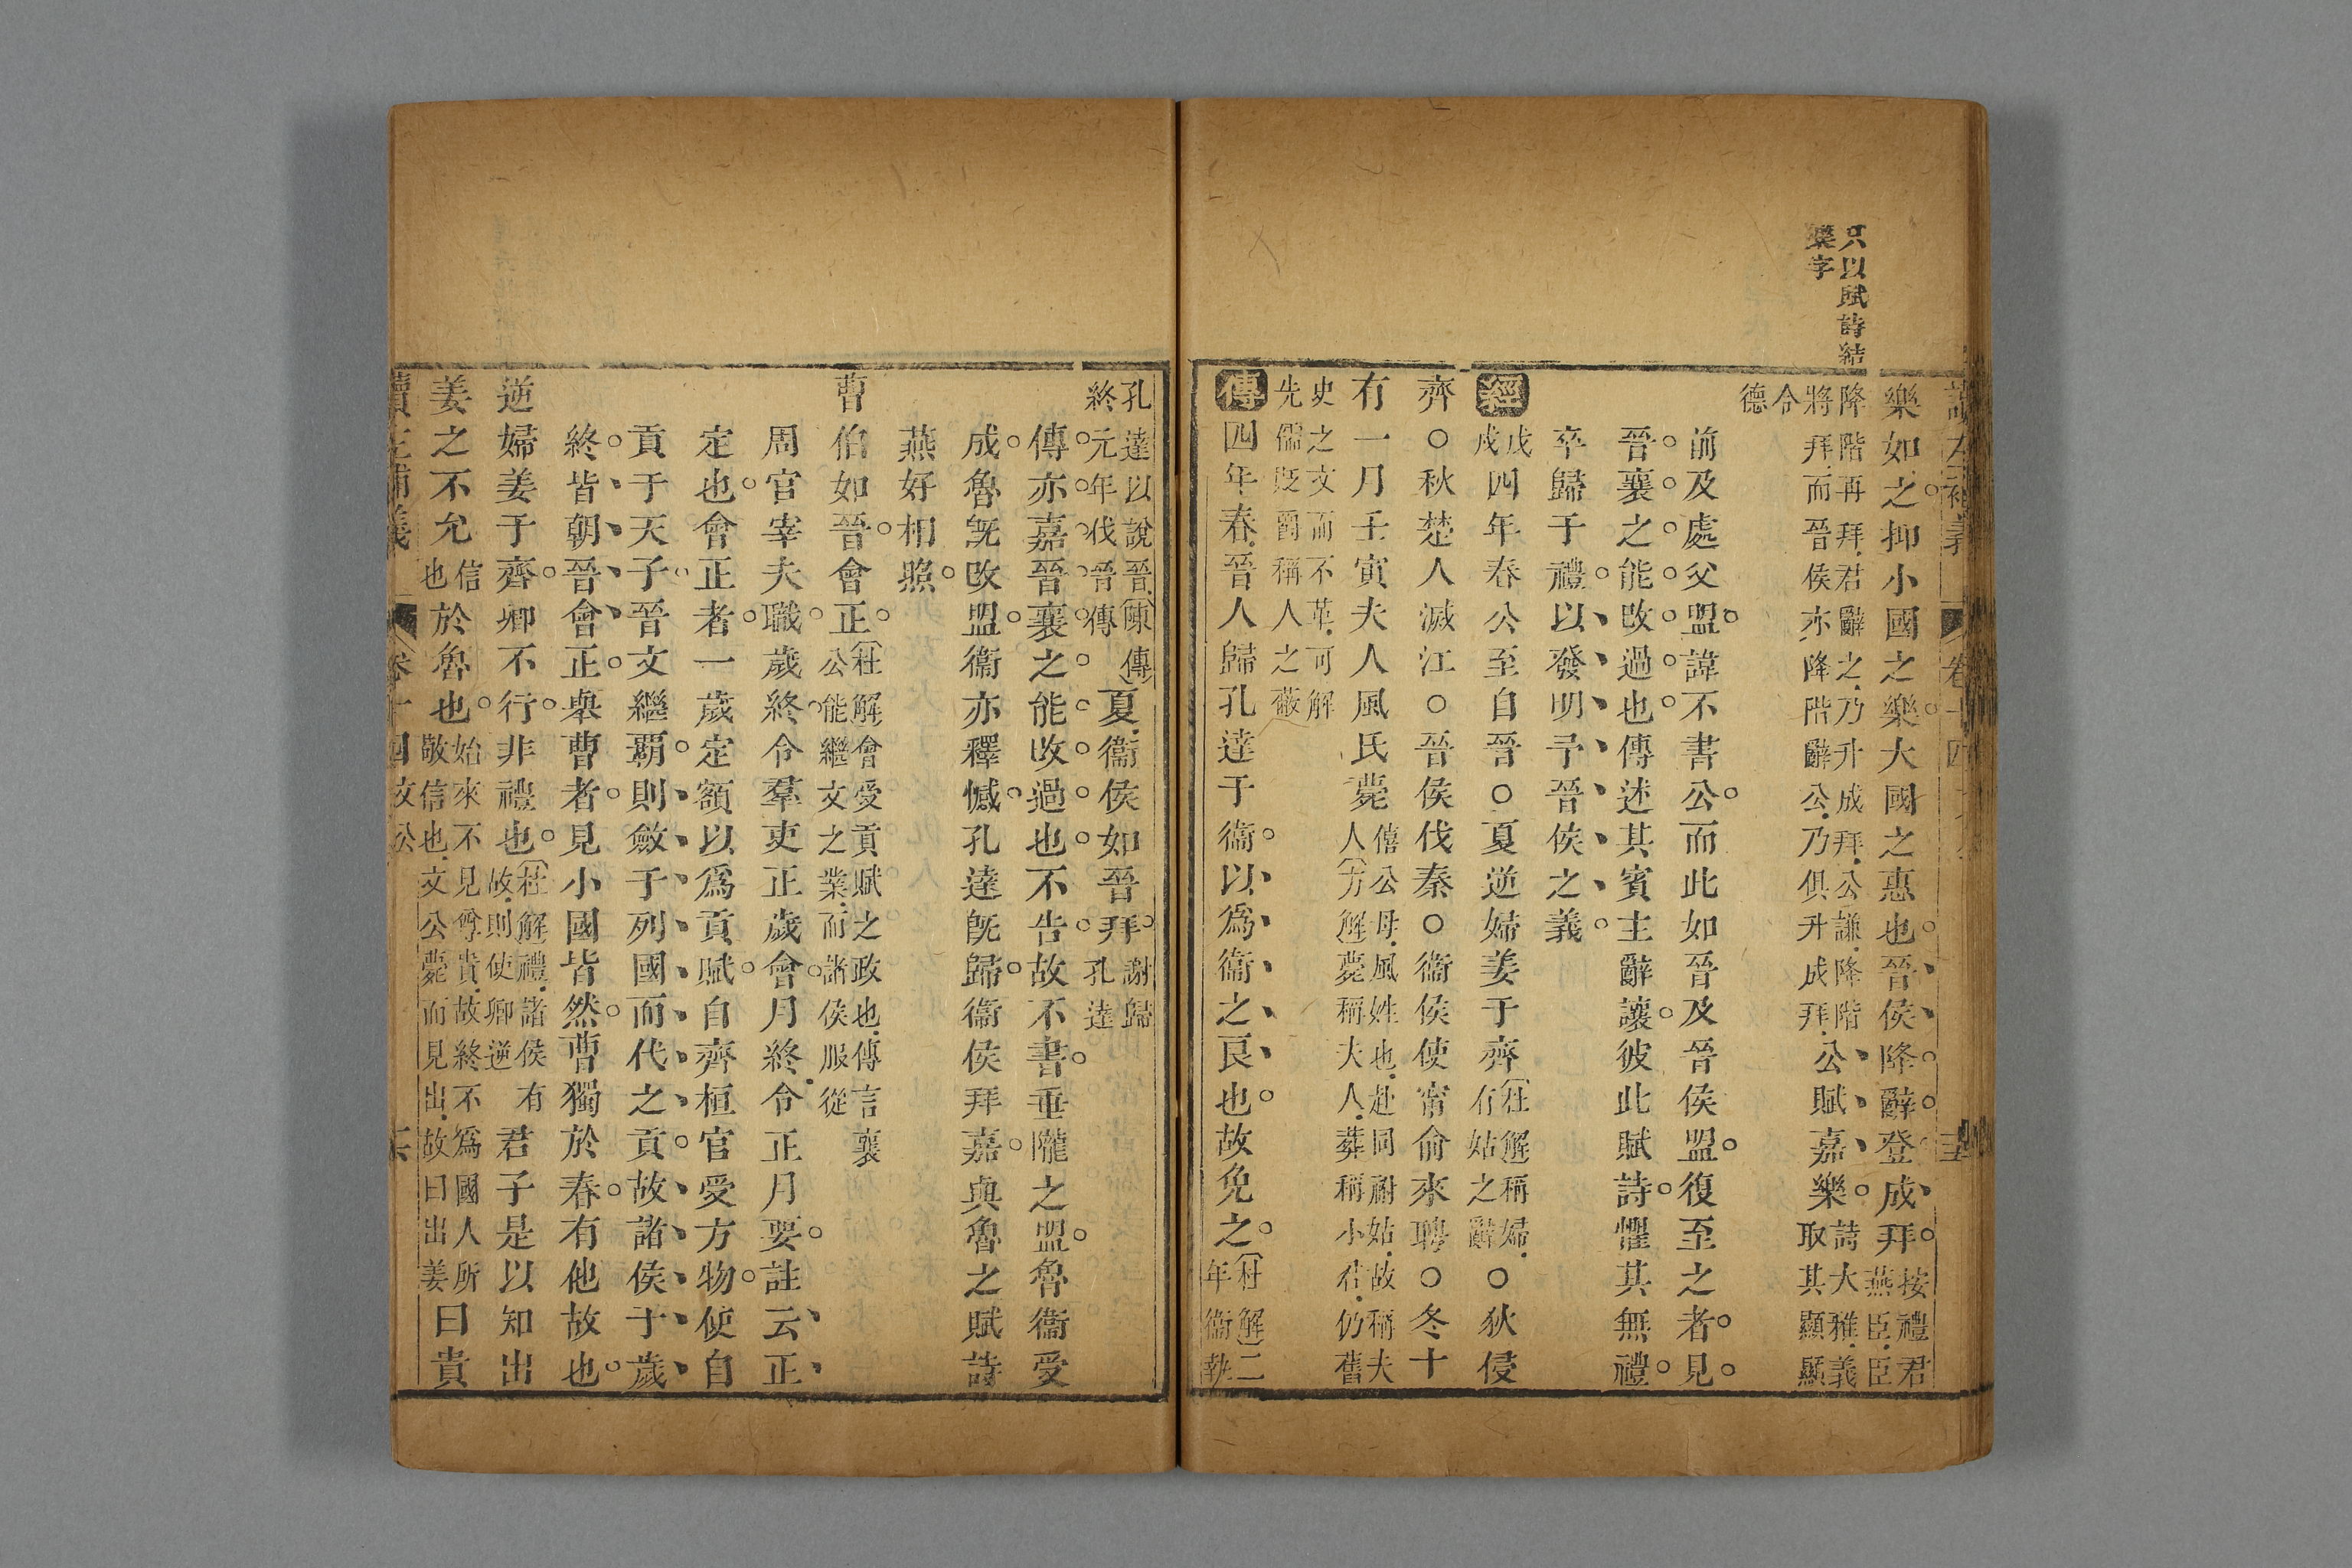 只以賦詩結
樂字
樂如之抑小國之樂大國之惠也晉侯降辭登成拜按禮君燕臣臣
降階再拜君辭之乃升成拜公謙降階將拜而晉侯亦降階辭公乃俱升成拜公賦嘉樂詩大雅義取其顯顯
令德
前及處父盟諱不書公而此如晉及晉侯盟復至之者見
晉襄之能改過也傳述其賓主辭讓彼此賦詩懼其無禮
卒歸于禮以發明予晉侯之義
經戊戌四年春公至自晉○夏逆婦姜于齊杜解稱婦有姑之辭○狄侵
齊○秋楚人滅江○晉侯伐秦○衞侯使甯俞來聘○冬十
有一月壬寅夫人風氏薨僖公母風姓也赴同祔姑故稱夫人方解薨稱夫人葬稱小君仍舊
史之文而不革可解先儒貶爵稱人之蔽
傳四年春晉人歸孔達于衞以爲衞之良也故免之杜解二年衞執
孔達以說晉陳傳終元年伐晉傳夏衞侯如晉拜謝歸孔達
傳亦嘉晉襄之能改過也不告故不書垂隴之盟魯衞受
成魯旣改盟衞亦釋憾孔達旣歸衞侯拜嘉與魯之賦詩
燕好相照
曹伯如晉會正杜解會受貢賦之政也傳言襄公能繼文之業而諸侯服從
周官宰夫職歲終令羣吏正歲會月終令正月要註云正
定也會正者一歲定額以爲貢賦自齊桓官受方物使自
貢于天子晉文繼覇則斂于列國而代之貢故諸侯于歲
終皆朝晉會正舉曹者見小國皆然曹獨於春有他故也
逆婦姜于齊卿不行非禮也杜解禮諸侯有故則使卿逆君子是以知出
姜之不允信也於魯也始來不見尊貴故終不爲國人所敬信也文公薨而見出故曰出姜曰貴
讀左補義 卷十四文公